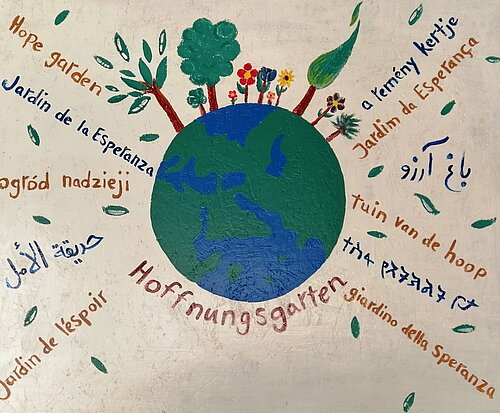 Hope garden
Jardin de la Esperanza
ogród nadzieji
حديقة الأمل
Jardin de l'éspoir
Hoffnungsgarten
a remény kertje
Jardim da Esperança
باغ آرزو
tuin van de hoop
giardino della Speranza